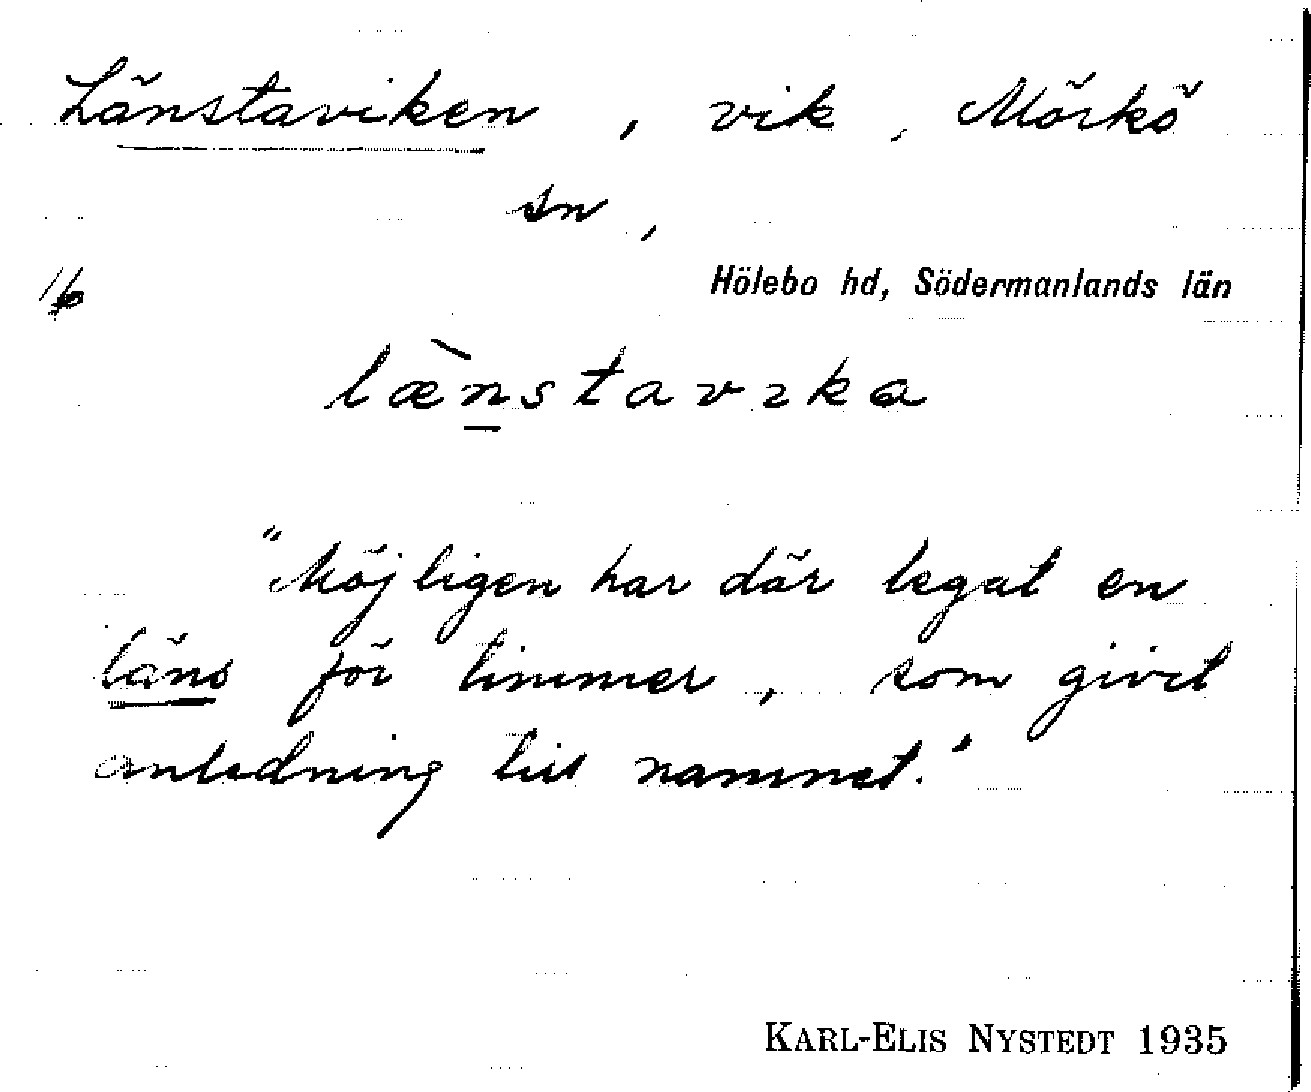 Länstaviken, vik, Mörkö
sn,
Hölebo hd, Södermanlands län
læ̀n̲stavɩka
"Möjligen har där legat en
läns för timmer, som givit
anledning till namnet."
KARL-ELIS NYSTEDT 1935